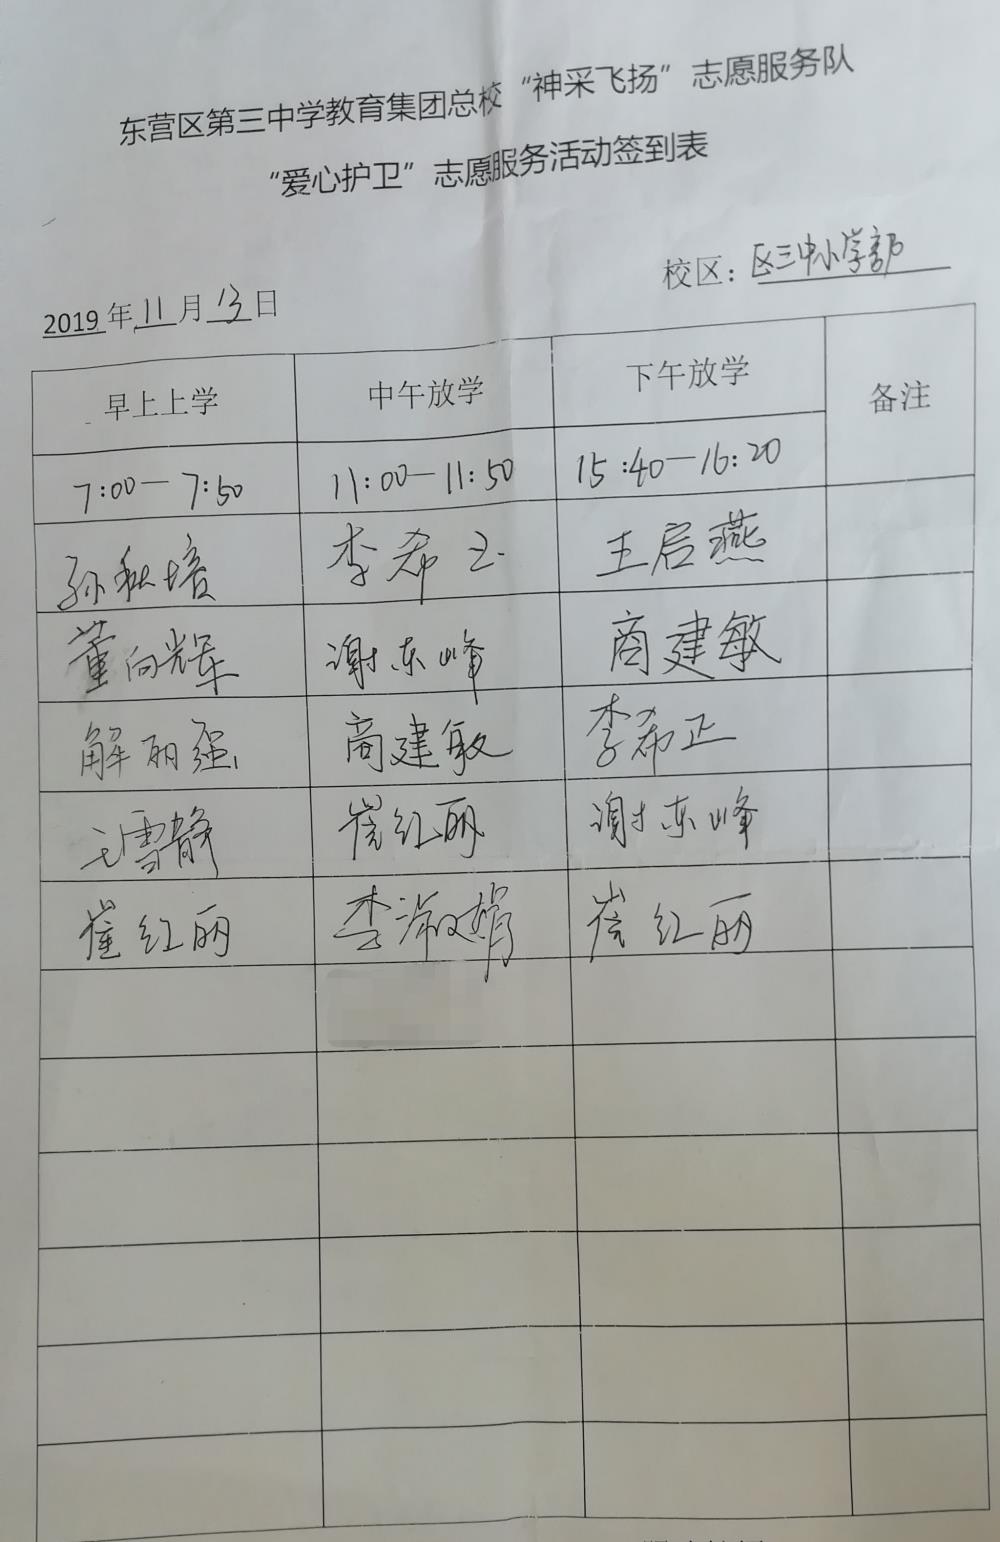 东营区第三中学教育集团总校“神采飞扬”志愿服务队
“爱心护卫”志愿服务活动签到表
校区：区三中小学部
2019年11月13日
早上上学 中午放学 下午放学 备注
7:00—7:50 11:00—11:50 15:40—16:20
孙秋培 李希正 王启燕
董向辉 谢东峰 商建敏
解丽强 商建敏 李希正
王雪静 崔红丽 谢东峰
崔红丽 李淑娟 崔红丽